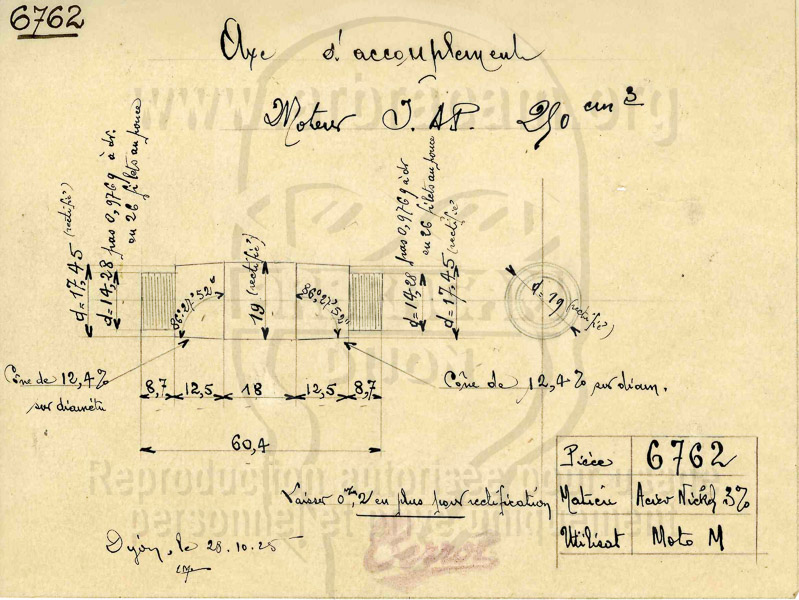 6762
Axe d'accouplement
Moteur J.A.P. 250 cm3
d=17,45 (rectifié)
d=14,28 pas 0,9769 à dr.
ou 26 filets au pouce
86°27'52"
19 (rectifié)
86°27'52"
d=14,28 pas 0,9769 à dr
ou 26 filets au pouce
d=17,45 (rectifié)
d=19 (rectifié)
Cône de 12,4%
sur diamètre
Cône de 12,4% sur diam.
8,7 12,5 18 12,5 8,7
60,4
Laisser 0m/m,2 en plus pour rectification
Pièce 6762
Matière Acier Nickel 3%
Utilisat Moto M
Dijon, le 28.10.25
Terrot
www.arbracam.org
Reproduction autorisée pour usage
personnel et